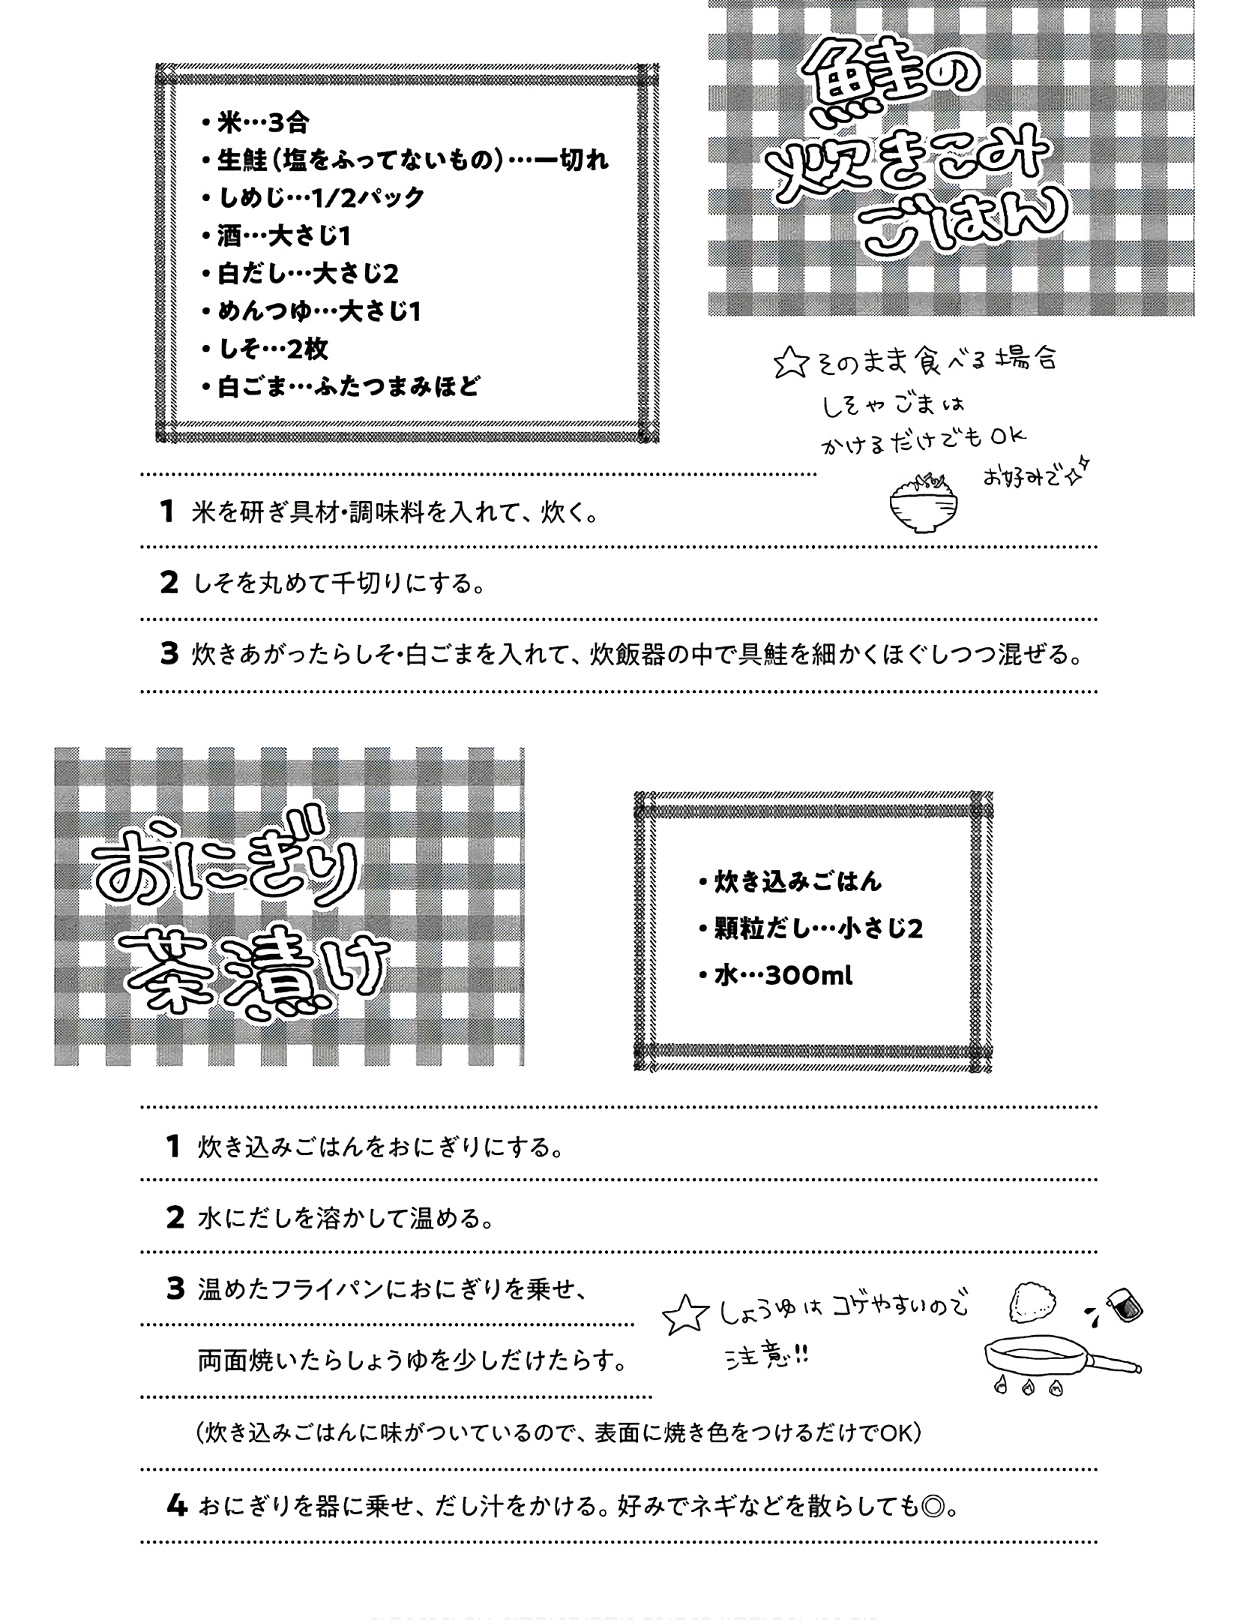 鮭の
炊きこみ
ごはん
・米…3合
・生鮭(塩をふってないもの)…一切れ
・しめじ…1/2パック
・酒…大さじ1
・白だし…大さじ2
・めんつゆ…大さじ1
・しそ…2枚
・白ごま…ふたつまみほど
☆そのまま食べる場合
しそや ごまは
かけるだけでも OK
お好みで
1 米を研ぎ具材・調味料を入れて、炊く。
2 しそを丸めて千切りにする。
3 炊きあがったらしそ・白ごまを入れて、炊飯器の中で具鮭を細かくほぐしつつ混ぜる。
おにぎり
茶漬け
・炊き込みごはん
・顆粒だし…小さじ2
・水…300ml
1 炊き込みごはんをおにぎりにする。
2 水にだしを溶かして温める。
3 温めたフライパンにおにぎりを乗せ、
両面焼いたらしょうゆを少しだけたらす。
(炊き込みごはんに味がついているので、表面に焼き色をつけるだけでOK)
☆しょうゆは コゲやすいので
注意!!
4 おにぎりを器に乗せ、だし汁をかける。好みでネギなどを散らしても◎。